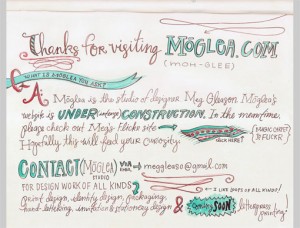 Thanks for visiting MÖGLEA.COM
(MOH-GLEE)
WHAT IS MÖGLEA YOU ASK?
A. Möglea is the studio of designer Meg Gleason. Möglea's
website is UNDER CONSTRUCTION. In the meantime,
please check out Meg's Flickr site
Hopefully, this will feed your curiosity!
CLICK HERE!
CONTACT (MÖGLEA) STUDIO VIA EMAIL meggleaso@gmail.com
FOR DESIGN WORK OF ALL KINDS
I LIKE JOBS OF ALL KINDS!
print design, identity design, packaging,
hand-lettering, invitation & stationery design & COMING SOON letterpress printing!